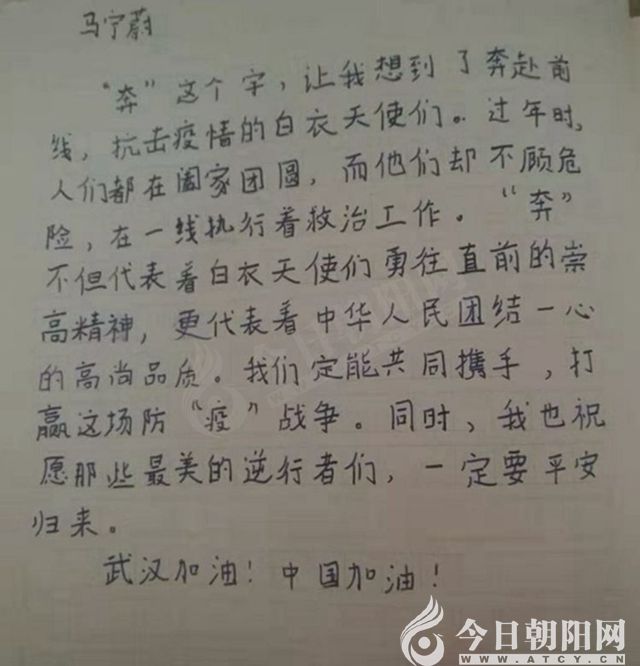 马宁蔚
“奔”这个字，让我想到了奔赴前
线，抗击疫情的白衣天使们。过年时，
人们都在阖家团圆，而他们却不顾危
险，在一线执行着救治工作。“奔”
不但代表着白衣天使们勇往直前的崇
高精神，更代表着中华人民团结一心
的高尚品质。我们定能共同携手，打
赢这场防“疫”战争。同时，我也祝
愿那些最美的逆行者们，一定要平安
归来。
武汉加油！中国加油！
今日朝阳网
WWW.ATCY.CN